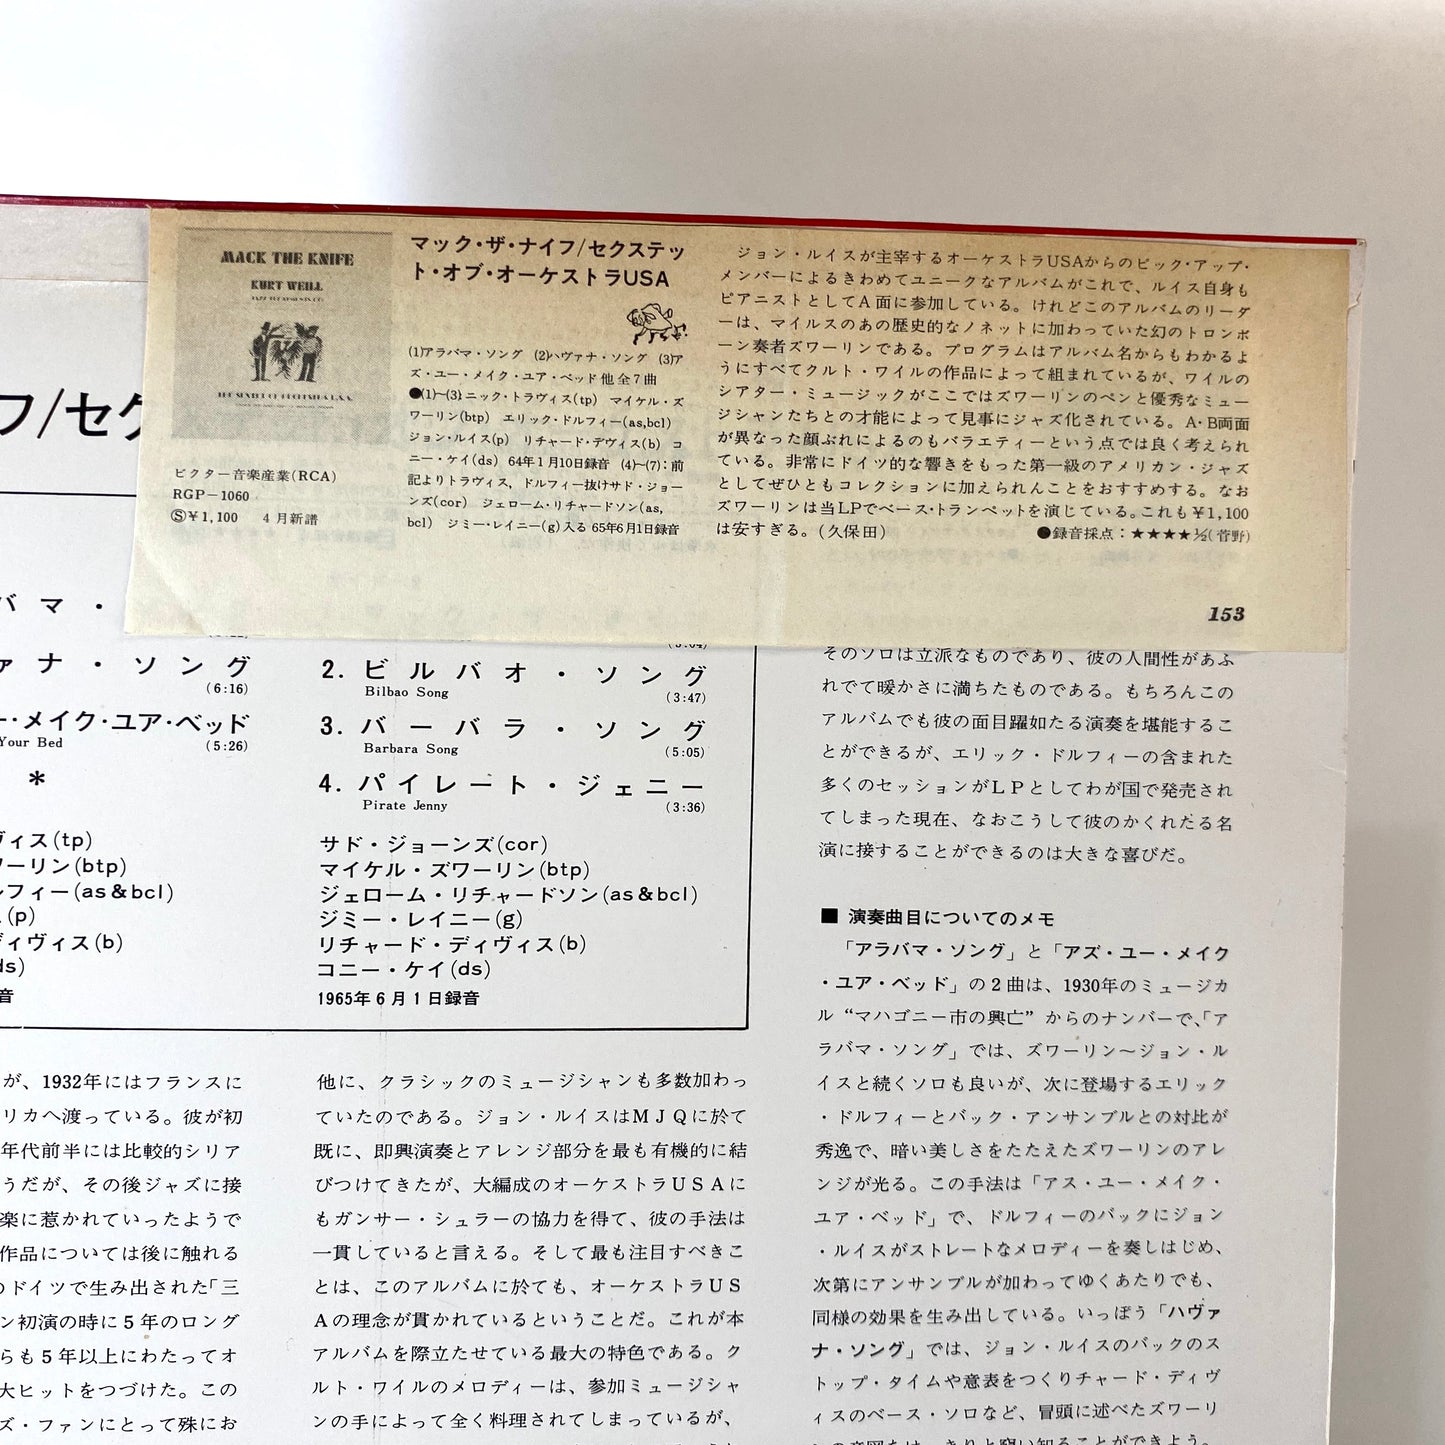 MACK THE KNIFE
KURT WEILL
THE SEXTET OF ORCHESTRA U.S.A.
ビクター音楽産業(RCA)
RGP−1060
Ⓢ¥1,100 4月新譜
マック・ザ・ナイフ/セクステッ
ト・オブ・オーケストラUSA
(1)アラバマ・ソング (2)ハヴァナ・ソング (3)ア
ズ・ユー・メイク・ユア・ベッド他全7曲
●(1)〜(3):ニック・トラヴィス(tp) マイケル・ズ
ワーリン(btp) エリック・ドルフィー(as,bcl)
ジョン・ルイス(p) リチャード・デヴィス(b) コ
ニー・ケイ(ds) 64年1月10日録音 (4)〜(7):前
記よりトラヴィス,ドルフィー抜けサド・ジョー
ンズ(cor) ジェローム・リチャードソン(as,
bcl) ジミー・レイニー(g)入る 65年6月1日録音
ジョン・ルイスが主宰するオーケストラUSAからのピック・アップ・
メンバーによるきわめてユニークなアルバムがこれで、ルイス自身も
ピアニストとしてA面に参加している。けれどこのアルバムのリーダ
ーは、マイルスのあの歴史的なノネットに加わっていた幻のトロンボ
ーン奏者ズワーリンである。プログラムはアルバム名からもわかるよ
うにすべてクルト・ワイルの作品によって組まれているが、ワイルの
シアター・ミュージックがここではズワーリンのペンと優秀なミュー
ジシャンたちとの才能によって見事にジャズ化されている。A・B両面
が異なった顔ぶれによるのもバラエティーという点では良く考えられ
ている。非常にドイツ的な響きをもった第一級のアメリカン・ジャズ
としてぜひともコレクションに加えられんことをおすすめする。なお
ズワーリンは当LPでベース・トランペットを演じている。これも¥1,100
は安すぎる。(久保田) ●録音採点:★★★★½(菅野)
153
フ/セク
バ マ ・
ァ ナ ・ ソ ン グ
(6:16)
ー・メイク・ユア・ベッド
Your Bed (5:26)
*
ヴィス(tp)
ワーリン(btp)
ルフィー(as&bcl)
(p)
ディヴィス(b)
ds)
音
(3:04)
2. ビ ル バ オ ・ ソ ン グ
Bilbao Song (3:47)
3. バ ー バ ラ ・ ソ ン グ
Barbara Song (5:05)
4. パ イ レ ー ト ・ ジ ェ ニ ー
Pirate Jenny (3:36)
サド・ジョーンズ(cor)
マイケル・ズワーリン(btp)
ジェローム・リチャードソン(as&bcl)
ジミー・レイニー(g)
リチャード・ディヴィス(b)
コニー・ケイ(ds)
1965年6月1日録音
が、1932年にはフランスに
リカへ渡っている。彼が初
年代前半には比較的シリア
うだが、その後ジャズに接
楽に惹かれていったようで
作品については後に触れる
のドイツで生み出された「三
ン初演の時に5年のロング
らも5年以上にわたってオ
大ヒットをつづけた。この
ズ・ファンにとって殊にお
他に、クラシックのミュージシャンも多数加わっ
ていたのである。ジョン・ルイスはMJQに於て
既に、即興演奏とアレンジ部分を最も有機的に結
びつけてきたが、大編成のオーケストラUSAに
もガンサー・シュラーの協力を得て、彼の手法は
一貫していると言える。そして最も注目すべきこ
とは、このアルバムに於ても、オーケストラUS
Aの理念が貫かれているということだ。これが本
アルバムを際立たせている最大の特色である。ク
ルト・ワイルのメロディーは、参加ミュージシャ
ンの手によって全く料理されてしまっているが、
そのソロは立派なものであり、彼の人間性があふ
れでて暖かさに満ちたものである。もちろんこの
アルバムでも彼の面目躍如たる演奏を堪能するこ
とができるが、エリック・ドルフィーの含まれた
多くのセッションがLPとしてわが国で発売され
てしまった現在、なおこうして彼のかくれたる名
演に接することができるのは大きな喜びだ。
■ 演奏曲目についてのメモ
「アラバマ・ソング」と「アズ・ユー・メイク
・ユア・ベッド」の2曲は、1930年のミュージカ
ル“マハゴニー市の興亡”からのナンバーで、「ア
ラバマ・ソング」では、ズワーリン〜ジョン・ル
イスと続くソロも良いが、次に登場するエリック
・ドルフィーとバック・アンサンブルとの対比が
秀逸で、暗い美しさをたたえたズワーリンのアレ
ンジが光る。この手法は「アス・ユー・メイク・
ユア・ベッド」で、ドルフィーのバックにジョン
・ルイスがストレートなメロディーを奏しはじめ、
次第にアンサンブルが加わってゆくあたりでも、
同様の効果を生み出している。いっぽう「ハヴァ
ナ・ソング」では、ジョン・ルイスのバックのス
トップ・タイムや意表をつくリチャード・ディヴ
ィスのベース・ソロなど、冒頭に述べたズワーリ
ンの意図をはっきりと窺い知ることができよう。